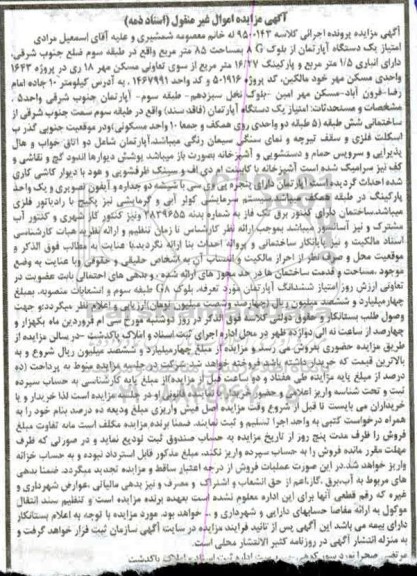 آگهی مزایده اموال غیر منقول (اسناد ذمه)
آگهی مزایده پرونده اجرائی کلاسه ۹۵۰۰۱۴۳ له خانم معصومه شمشیری و علیه آقای اسمعیل مرادی
امتیاز یک دستگاه آپارتمان از بلوک G ۸ بمساحت ۸۵ متر مربع واقع در طبقه سوم ضلع جنوب شرقی
دارای انباری ۱/۵ متر مربع و پارکینگ ۱۶/۲۷ متر مربع از سوی تعاونی مسکن مهر ۱۸ ری در پروژه ۱۶۴۳
واحدی مسکن مهر خود مالکین، کد پروژه ۵۰۱۹۱۶ و کد واحد ۱۴۶۷۹۹۱ به آدرس کیلومتر ۱۰ جاده امام
رضا-فرون آباد-مسکن مهر امین -بلوک نخل سیزدهم- طبقه سوم- آپارتمان جنوب شرقی واحد۵ .
مشخصات و مستحدثات: امتیاز یک دستگاه آپارتمان (فاقد سند) واقع در طبقه سوم سمت جنوب شرقی از
ساختمانی شش طبقه (۵ طبقه دو واحدی روی همکف و جمعا ۱۰ واحد مسکونی)ودر موقعیت جنوبی گذر ب
اسکلت فلزی و سقف تیرچه و نمای سنگی سیمان رنگی میباشد.آپارتمان شامل دو اتاق خواب و هال
پذیرایی و سرویس حمام و دستشویی و آشپزخانه بصورت باز میباشد پوشش دیوارها اندود گچ و نقاشی و
کف نیز سرامیک شده است آشپزخانه با کابینت ام دی اف و سینک ظرفشویی و هود با دیوار کاشی کاری
شده احداث گردیده است آپارتمان دارای پنجره پی وی سی با شیشه دو جداره و آیفون تصویری و یک واحد
پارکینگ در طبقه همکف است سیستم سرمایشی کولر آبی و گرمایشی نیز پکیج با رادیاتور فلزی
میباشد.ساختمان دارای کنتور برق تک فاز به شماره بدنه ۲۸۳۹۶۵۵ ونیز کنتور گاز شهری و کنتور آب
مشترک و نیز آسانسور میباشد بموجب ارائه نظر کارشناس تا زمان تنظیم و ارائه نظریه هیات کارشناسی
اسناد مالکیت و نیز پایانکار ساختمانی و پروانه احداث بنا ارائه نگردید.با عنایت به مطالب فوق الذکر و
موقعیت محل و صرف نظر از احراز مالکیت و انتساب آن به اشخاص حقیقی و حقوقی وبا عنایت به وضع
موجود .مساحت و قدمت ساختمان ها در حد مجوز های ارائه شده .و بدهی های احتمالی بابت عضویت در
تعاونی ارزش روز امتیاز ششدانگ آپارتمان مورد تعرفه، بلوک G۸ طبقه سوم و انشعابات منصوبه، بمبلغ
چهارمیلیارد و ششصد میلیون ریال
وصول طلب بستانکار و حقوق دولتی کلاسه فوق الذکر در روز دوشنبه مورخ سی ام فروردین ماه یکهزار و
چهارصد از ساعت نه الی دوازده ظهر در محل اداره اجرای ثبت اسناد و املاک پاکدشت -در سالن مزایده از
طریق مزایده حضوری بفروش می رسد. و مزایده از مبلغ چهارمیلیارد و ششصد میلیون ریال شروع و به
بالاترین قیمت که خریدار داشته باشد. فروخته خواهد شد. شرکت در جلسه مزایده منوط به پرداخت (ده
درصد از مبلغ پایه مزایده طی هفتاد و دو ساعت قبل از مزایده)از مبلغ پایه کارشناسی به حساب سپرده
ثبت و تحت شناسه واریز اعلامی و حضور خریدار یا نماینده قانونی او در جلسه مزایده است لذا خریدار و یا
خریداران می بایست تا قبل از شروع وقت مزایده اصل فیش واریزی مبلغ ودیعه ده درصد بنام خود را به
همراه درخواست کتبی به واحد اجرا تسلیم و ثبت نمایند. ضمنا برنده مزایده مکلف است مابه تفاوت مبلغ
فروش را ظرف مدت پنج روز از تاریخ مزایده به حساب صندوق ثبت تودیع نماید و در صورتی که ظرف
مهلت مقرر مانده فروش را به حساب سپرده واریز نکند، مبلغ مذکور قابل استرداد نبوده و به حساب خزانه
واریز خواهد شد.در این صورت عملیات فروش از درجه اعتبار ساقط و مزایده تجدید میگردد. ضمنا بدهی
های مربوط به آب،برق ،گاز،اعم از حق انشعاب و اشتراک و مصرف و نیز بدهی مالیاتی ،عوارض شهرداری و
غیره که رقم قطعی آنها برای این اداره معلوم نشده است بعهده برنده مزایده است و تنظیم سند انتقال
موکول به ارائه مفاصا حسابهای دارایی و شهرداری و ... خواهد بود. مورد مزایده با توجه به اعلام بستانکار
دارای بیمه می باشد این آگهی پس از تائید فرایند مزایده در سایت آگهی سازمان ثبت قرار خواهد گرفت و
به منزله انتشار آگهی در روزنامه کثیر الانتشار محلی است.